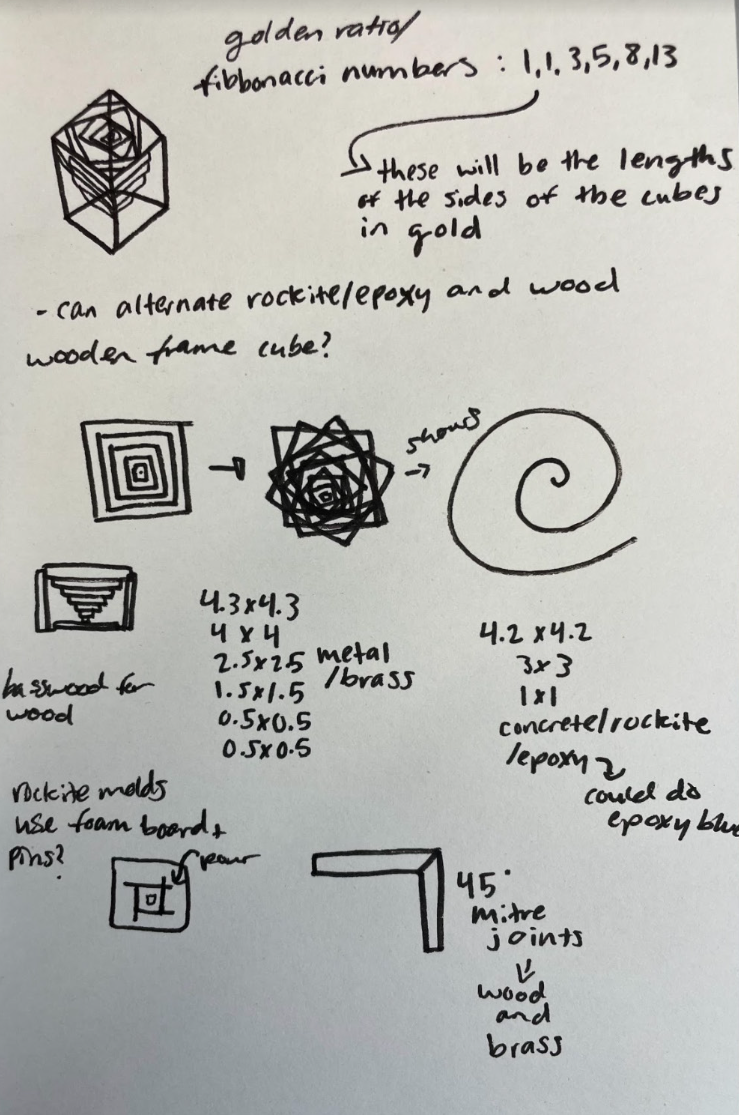 golden ratio/
fibbonacci numbers : 1, 1, 3, 5, 8, 13
these will be the lengths
of the sides of the cubes
in gold
- can alternate rockite/epoxy and wood
wooden frame cube?
shows
4.3x4.3
4 x 4
2.5x2.5 metal
1.5x1.5 /brass
0.5x0.5
0.5x0.5
4.2 x4.2
3x3
1x1
concrete/rockite
/epoxy
could do
epoxy blue
basswood for
wood
rockite molds
use foam board +
pins?
pour
45°
mitre
joints
wood
and
brass